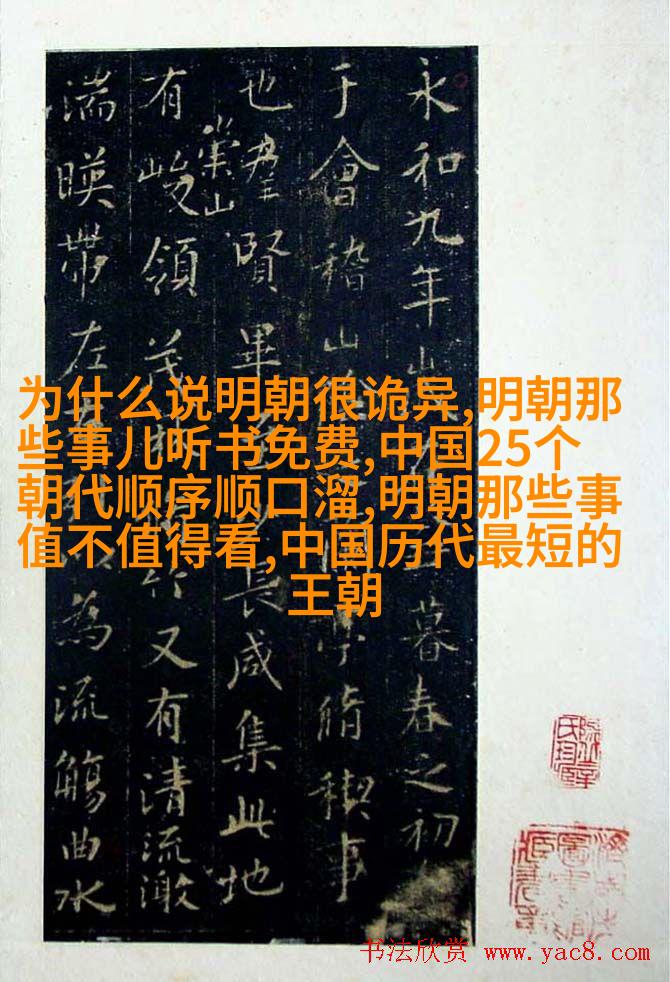 为什么说明朝很诡异,明朝那
些事儿听书免费,中国25个
朝代顺序顺口溜,明朝那些事
值不值得看,中国历代最短的
王朝
永和九年暮春之初
于會稽山脩稧事
也羣賢畢長咸集此地
有崇山峻領茂又有清流激
湍暎帶左為流觴曲水
书法欣赏 www.yac8.com